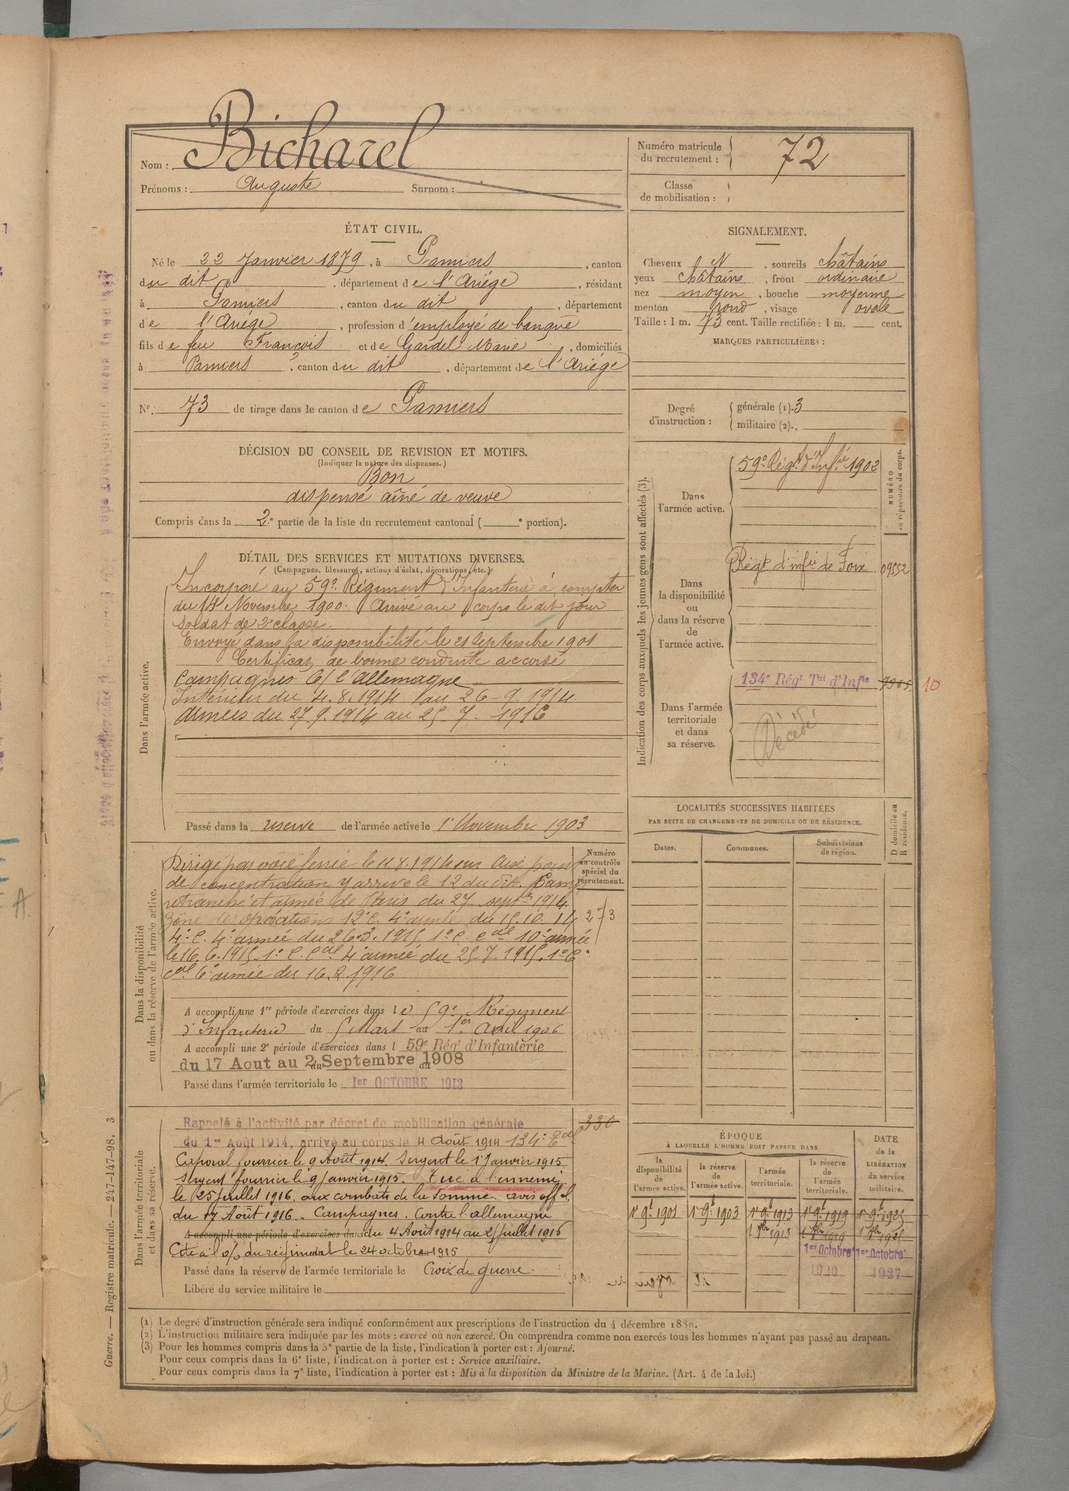 Nom : Bicharel
Prénoms : Auguste Surnom :
Numéro matricule du recrutement : 72
Classe de mobilisation :
ÉTAT CIVIL.
Né le 22 Janvier 1879, à Pamiers, canton
du dit, département de l'Ariége, résidant
à Pamiers, canton du dit, département
de l'Ariége, profession d'employé de banque
fils de feu François et de Gardel Marie, domiciliés
à Pamiers, canton du dit, département de l'Ariége
N° 73 de tirage dans le canton de Pamiers
SIGNALEMENT.
Cheveux N, sourcils châtains
yeux châtains, front ordinaire
nez moyen, bouche moyenne
menton rond, visage ovale
Taille : 1 m. 73 cent. Taille rectifiée : 1 m. cent.
MARQUES PARTICULIÈRES :
Degré d'instruction : générale (1). 3
militaire (2).
DÉCISION DU CONSEIL DE REVISION ET MOTIFS.
(Indiquer la nature des dispenses.)
Bon
dispensé aîné de veuve
Compris dans la 2e partie de la liste du recrutement cantonal ( e portion).
DÉTAIL DES SERVICES ET MUTATIONS DIVERSES.
(Campagnes, blessures, actions d'éclat, décorations, etc.)
Dans l'armée active.
Incorporé au 59e Régiment d'Infanterie à compter
du 14 Novembre 1900. Arrivé au corps le dit jour
Soldat de 2e classe.
Envoyé dans la disponibilité le 21 Septembre 1901
Certificat de bonne conduite accordé
Campagnes C/ l'Allemagne
Intérieur du 4.8.1914 au 26.9.1914
Armées du 27.9.1914 au 25.7.1916
Passé dans la réserve de l'armée active le 1er Novembre 1903
Indication des corps auxquels les jeunes gens sont affectés (3).
NUMÉRO au répertoire du corps.
Dans l'armée active.
59e Régt d'Infie 1902
Dans la disponibilité ou dans la réserve de l'armée active.
Régt d'infie de Foix 09552
134e Régt Tal d'Infie 7905 10
Dans l'armée territoriale et dans sa réserve.
Décédé
LOCALITÉS SUCCESSIVES HABITÉES
PAR SUITE DE CHANGEMENTS DE DOMICILE OU DE RÉSIDENCE.
Dates. Communes. Subdivisions de région. D domicile ou R résidence.
Dans la disponibilité ou dans la réserve de l'armée active.
Numéro au contrôle spécial du recrutement.
273
Dirigé par voie ferrée le 11.8.1914 sur
de concentration y arrive le 12 du dit. Camp
retranché et armée de Paris du 27 septe 1914.
Zone des opérations 12e C. 4e armée du 15.10.14
4e C. 4e armée du 26.3.1915 1er C. cal 10e armée
le 16.6.1915 1er C. cal 4e armée du 25.7.1915. 1er C.
cal 6e armée du 16.2.1916
A accompli une 1re période d'exercices dans le 59e Régiment
d'Infanterie du 5 Mars au 1er Avril 1906
A accompli une 2e période d'exercices dans l 59e Régt d'Infanterie
du 17 Aout au 2 Septembre 1908
Passé dans l'armée territoriale le 1er OCTOBRE 1913
Dans l'armée territoriale et dans sa réserve.
330
Rappelé à l'activité par décret de mobilisation générale
du 1er Août 1914, arrivé au corps le 4 Août 1914 134e
Caporal fourrier le 9 Août 1914. Sergent le 1er Janvier 1915.
Sergent fourrier le 9 Janvier 1915. Tué à l'ennemi
le 25 Juillet 1916 aux combats de la Somme. avis offel
du 17 Août 1916. Campagnes. Contre l'allemagne
A accompli une période d'exercices dans du 4 Août 1914 au 25 Juillet 1916
Cité à l'o/ du régiment le 24 octobre 1915
Passé dans la réserve de l'armée territoriale le Croix de guerre.
Libéré du service militaire le
ÉPOQUE
À LAQUELLE L'HOMME DOIT PASSER DANS
la disponibilité de l'armée active. la réserve de l'armée active. l'armée territoriale. la réserve de l'armée territoriale. DATE DE LA LIBÉRATION du service militaire.
1er 9e 1901 1er 9e 1903 1er 9e 1913 1er 9e 1919 1er 9e 1925
1er Octobre 1920 1er Octobre 1927
(1) Le degré d'instruction générale sera indiqué conformément aux prescriptions de l'instruction du 4 décembre 1889.
(2) L'instruction militaire sera indiquée par les mots : exercé ou non exercé. On comprendra comme non exercés tous les hommes n'ayant pas passé au drapeau.
(3) Pour les hommes compris dans la 5e partie de la liste, l'indication à porter est : Ajourné.
Pour ceux compris dans la 6e liste, l'indication à porter est : Service auxiliaire.
Pour ceux compris dans la 7e liste, l'indication à porter est : Mis à la disposition du Ministre de la Marine. (Art. 4 de la loi.)
Guerre. — Registre matricule. — 247-147-98. 3